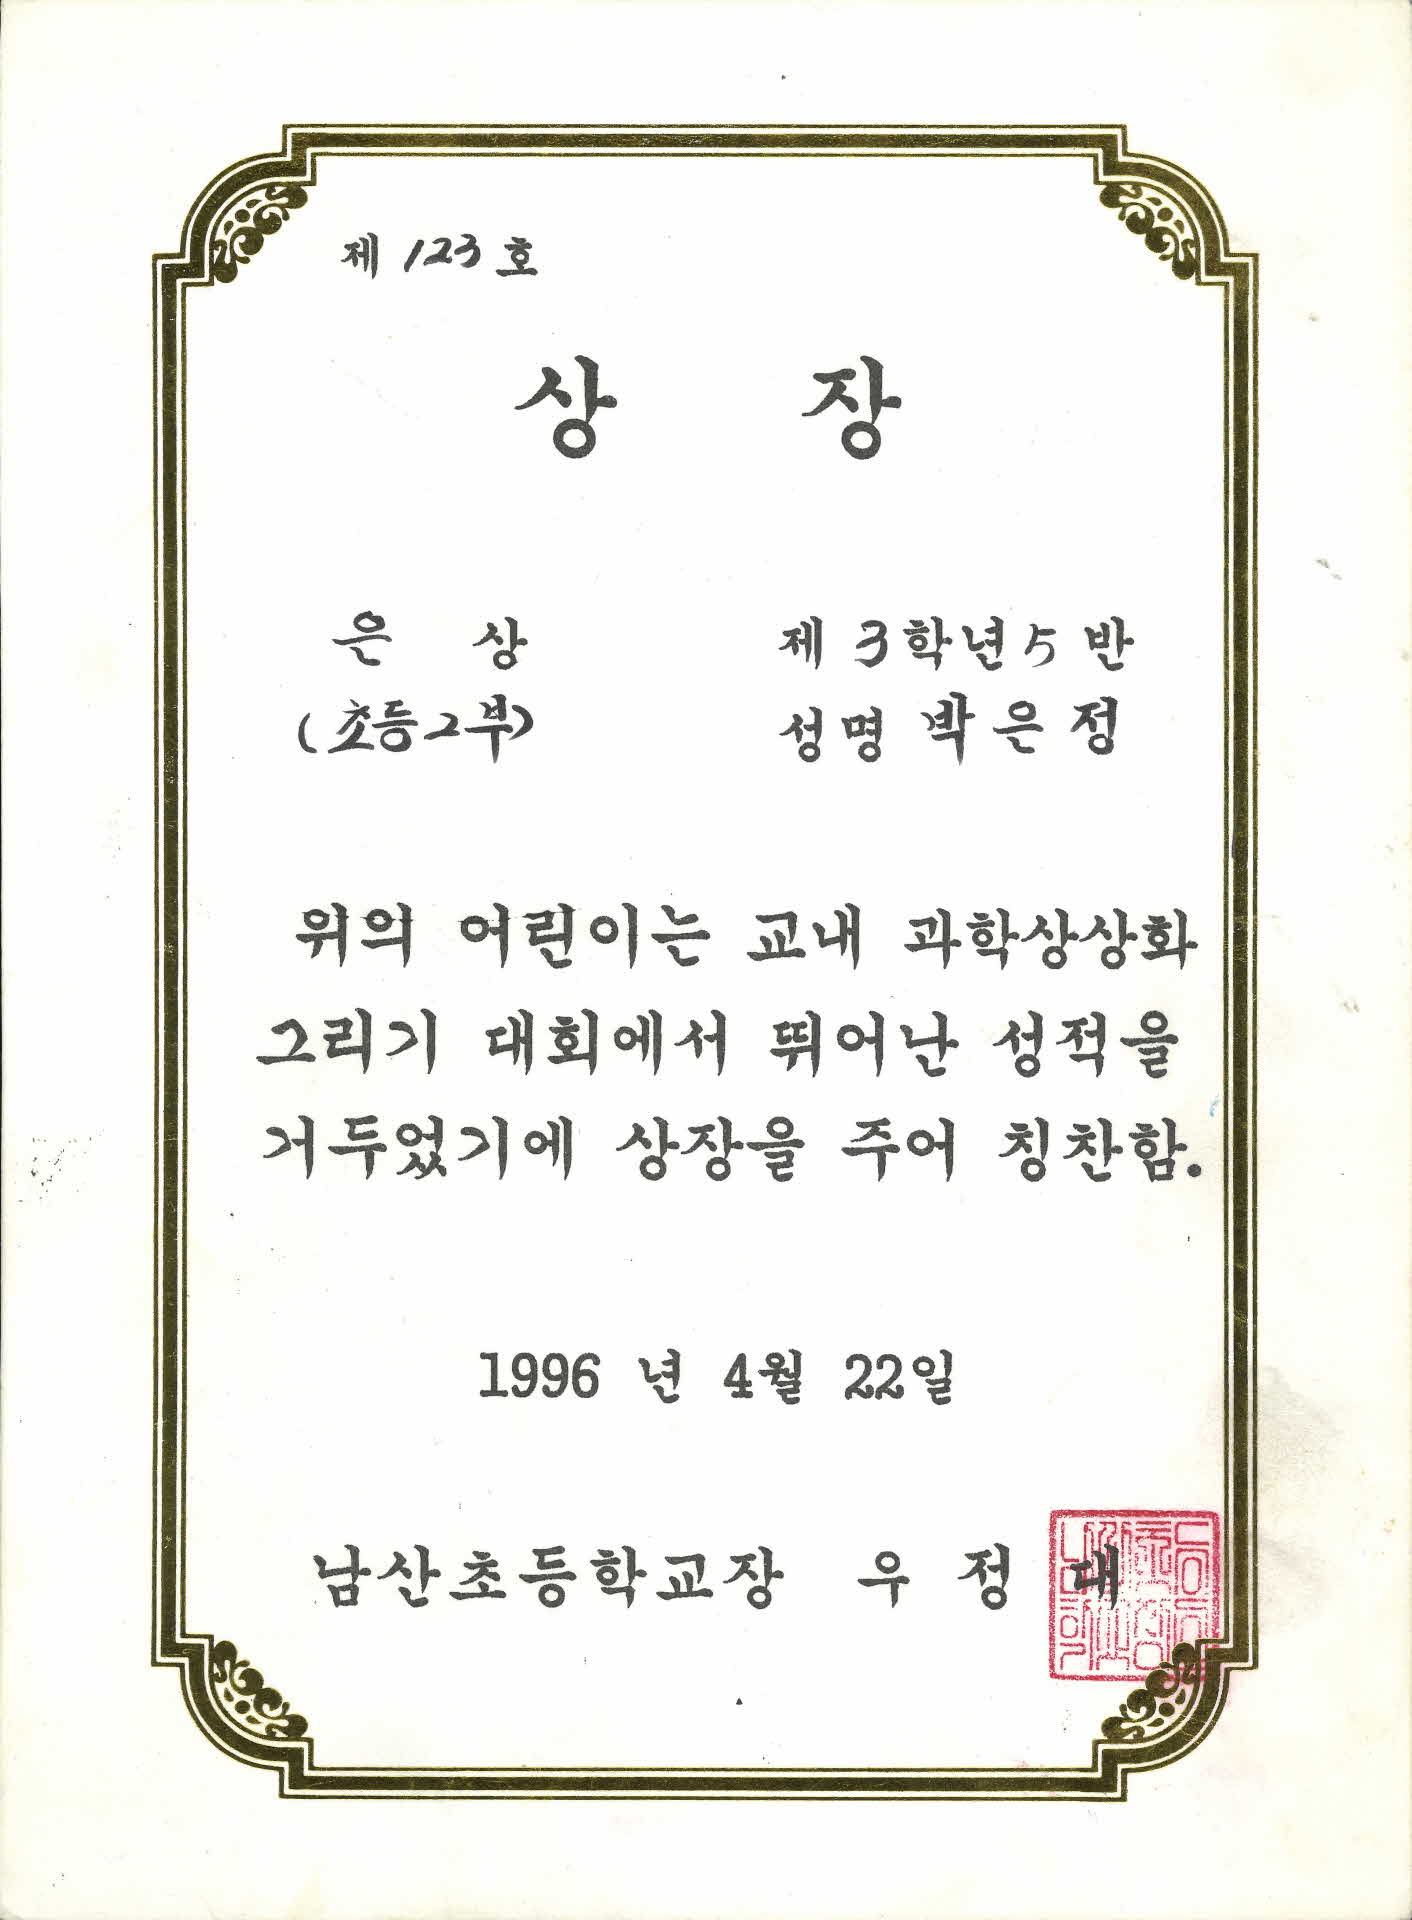 제 123 호
상 장
은 상
(초등2부)
제 3학년 5 반
성명 박은정
위의 어린이는 교내 과학상상화
그리기 대회에서 뛰어난 성적을
거두었기에 상장을 주어 칭찬함.
1996 년 4월 22일
남산초등학교장 우 정 대